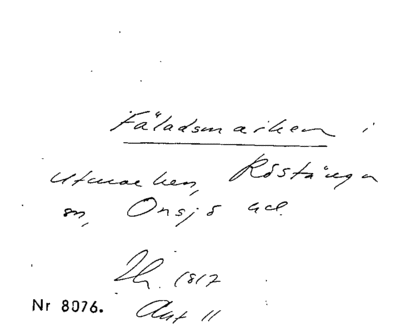 Fäladsmarken i
utmarken, Röstånga
sn, Onsjö hd.
Th. 1817
Nr 8076. Akt 11